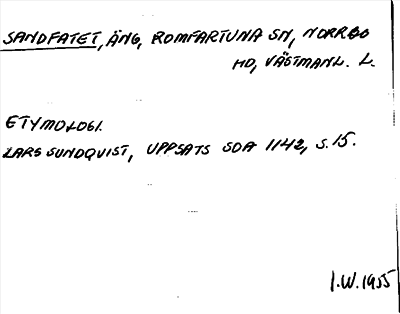 SANDFATET, ÄNG, ROMFARTUNA SN, NORRBO
HD, VÄSTMANL. L.
ETYMOLOGI.
LARS SUNDQVIST, UPPSATS SOA 1142, S. 15.
I.W. 1955